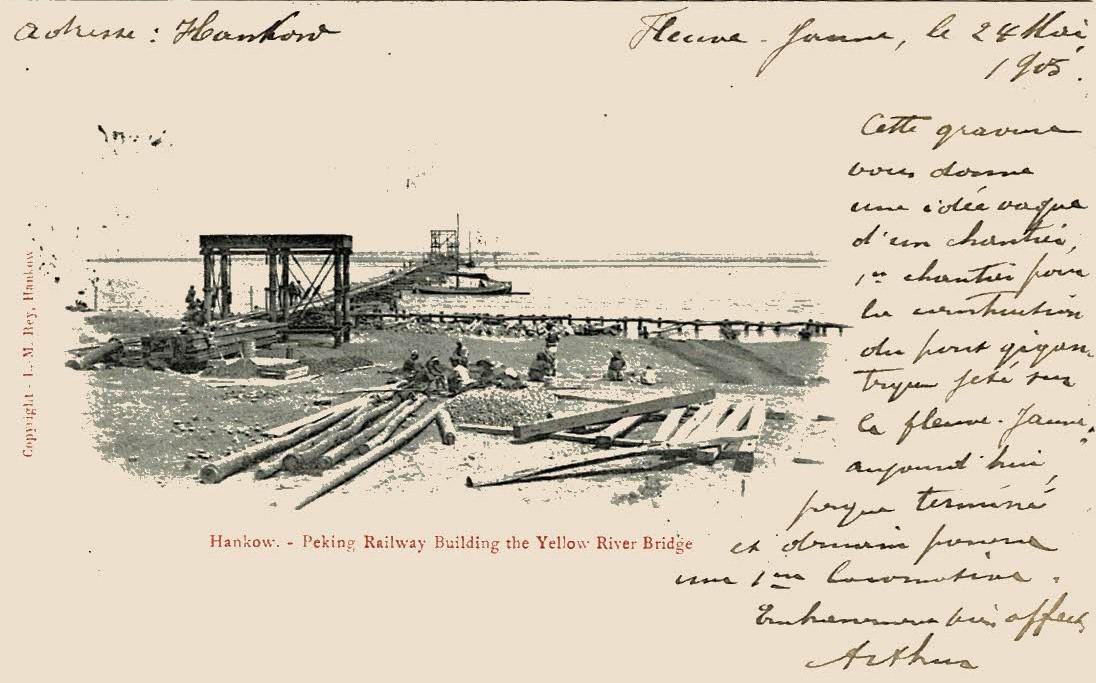 adresse : Hankow
Fleuve-Jaune, le 24 Mai
1905.
Cette gravure
vous donne
une idée vague
d'un chantier,
1er chantier pour
la construction
du pont gigan-
tesque jeté sur
le fleuve-Jaune,
aujourd'hui,
presque terminé
et demain passera
une 1ère locomotive.
Embrassements bien affect.
Arthur
Copyright - L.-M. Rey, Hankow
Hankow. - Peking Railway Building the Yellow River Bridge